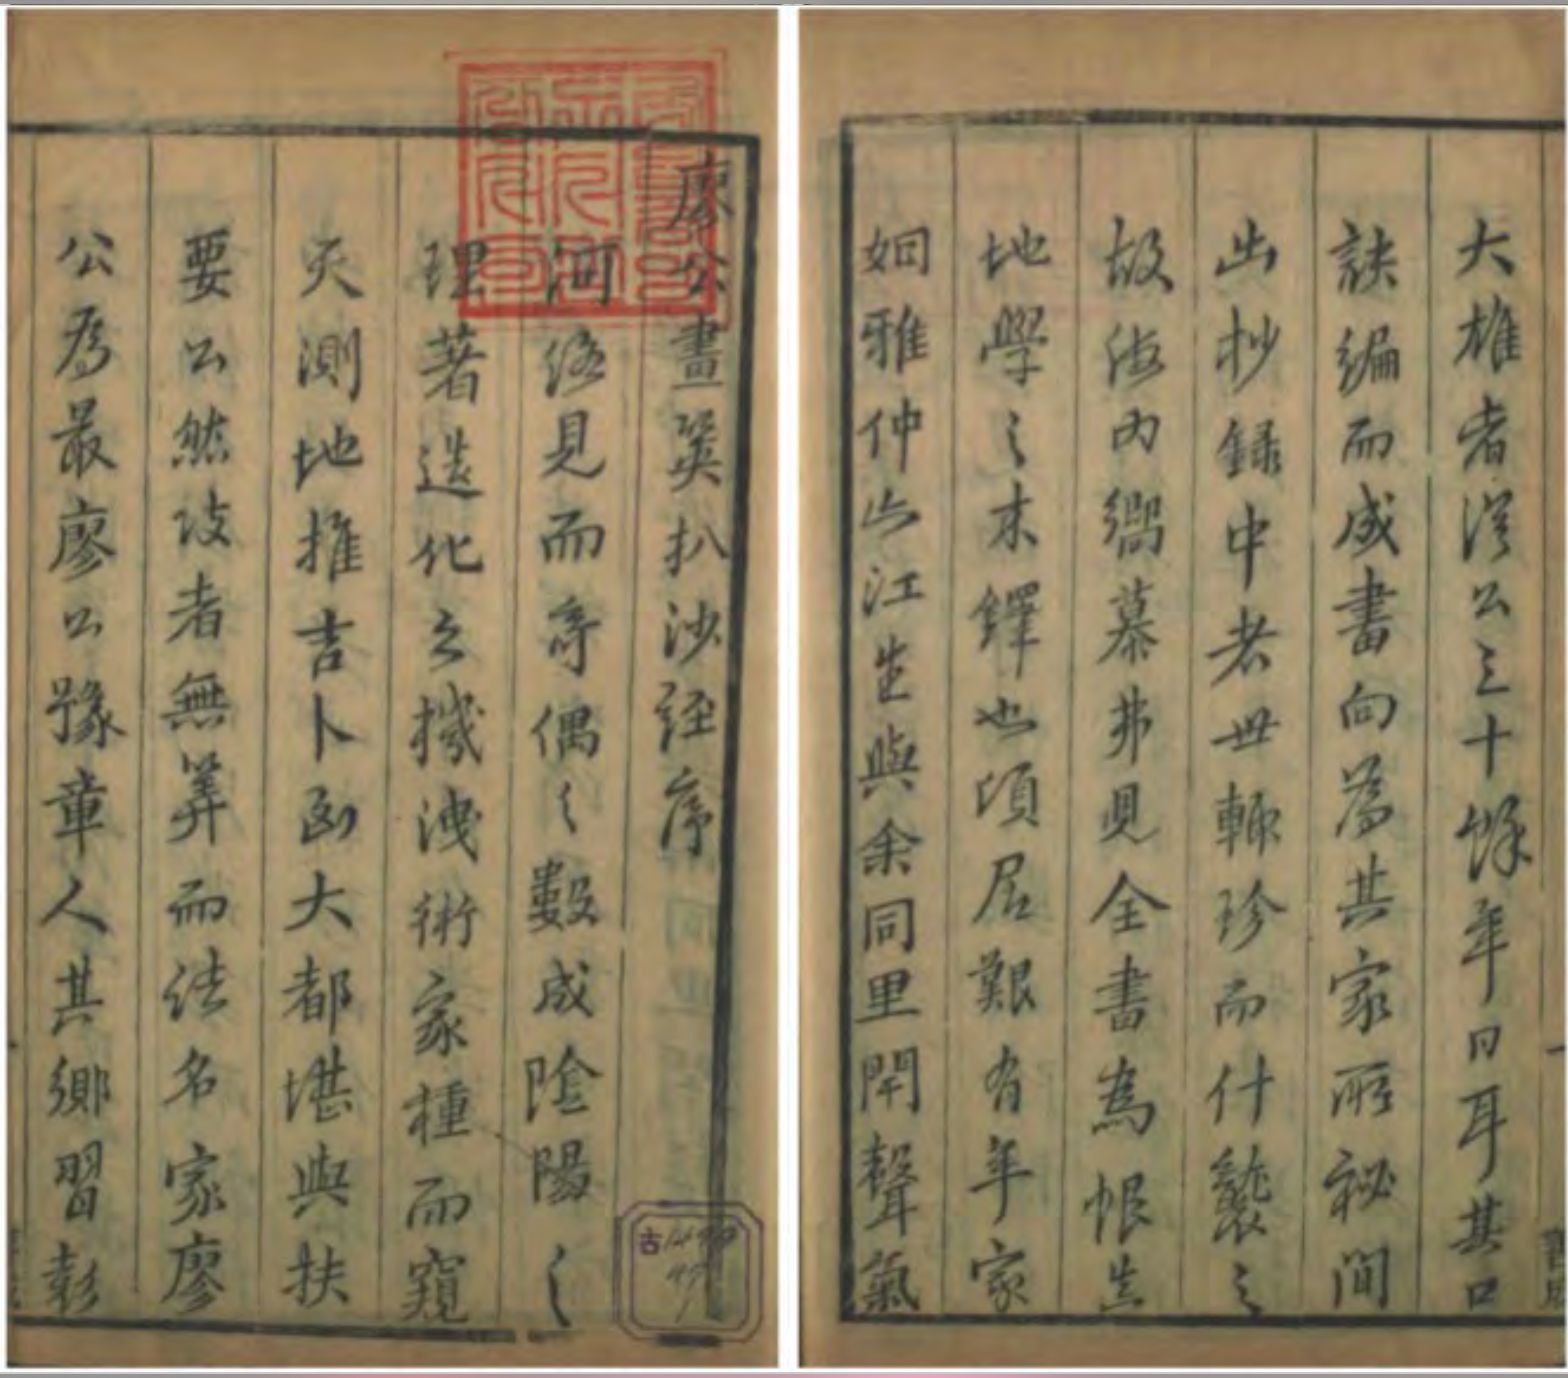 廖公畫筴扒沙經序
河洛見而奇偶之數成陰陽之
理著造化之機洩術家種而窺
天測地推吉卜凶大都堪輿扶
要公然彼者無筭而法名家廖
公為最廖公豫章人其鄉習彭
大雄者從公三十餘年日耳其口
訣編而成書向為其家所祕間
出抄錄中者世輒珍而什襲之
故海內嚮慕弗見全書為恨
地學之木鐸也頃居艱有年家
姻雅仲山江生與余同里閈聲氣
古